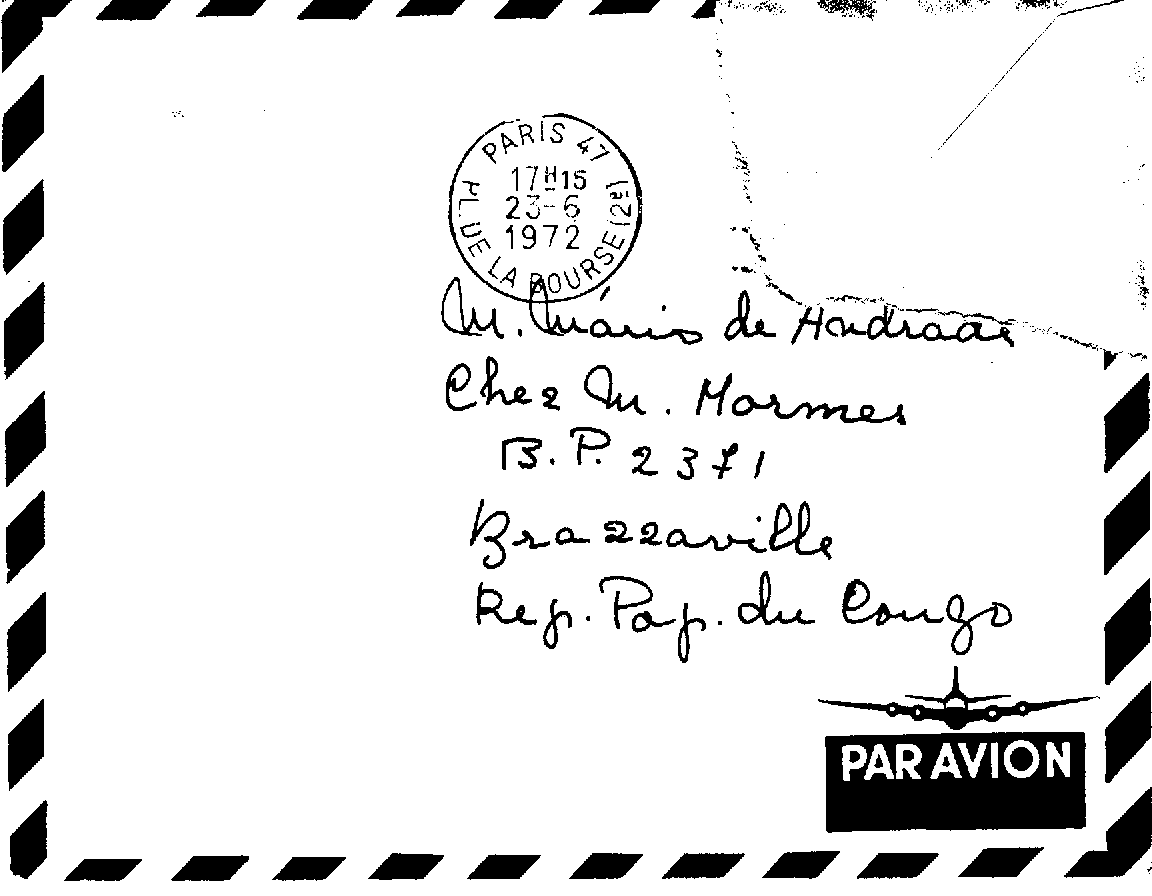 PARIS 47
17H15
23-6
1972
PL. DE LA BOURSE (2e)
M. Mário de Andrade
Chez M. Mormes
B.P. 2371
Brazzaville
Rep. Pop. du Congo
PAR AVION